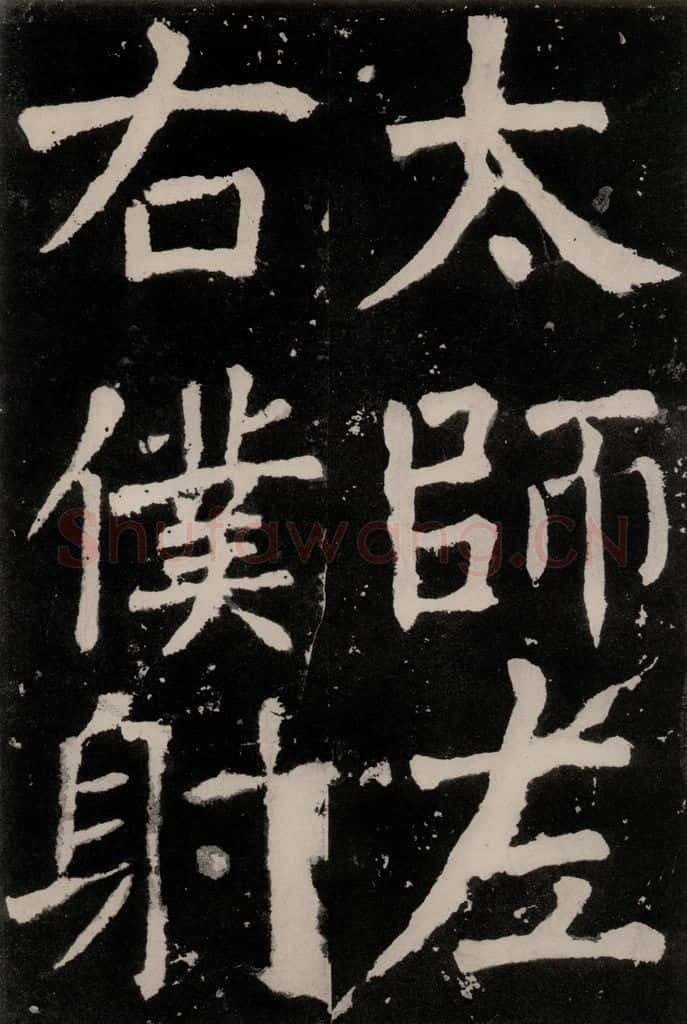 太師左
右僕射
Shufawang.CN